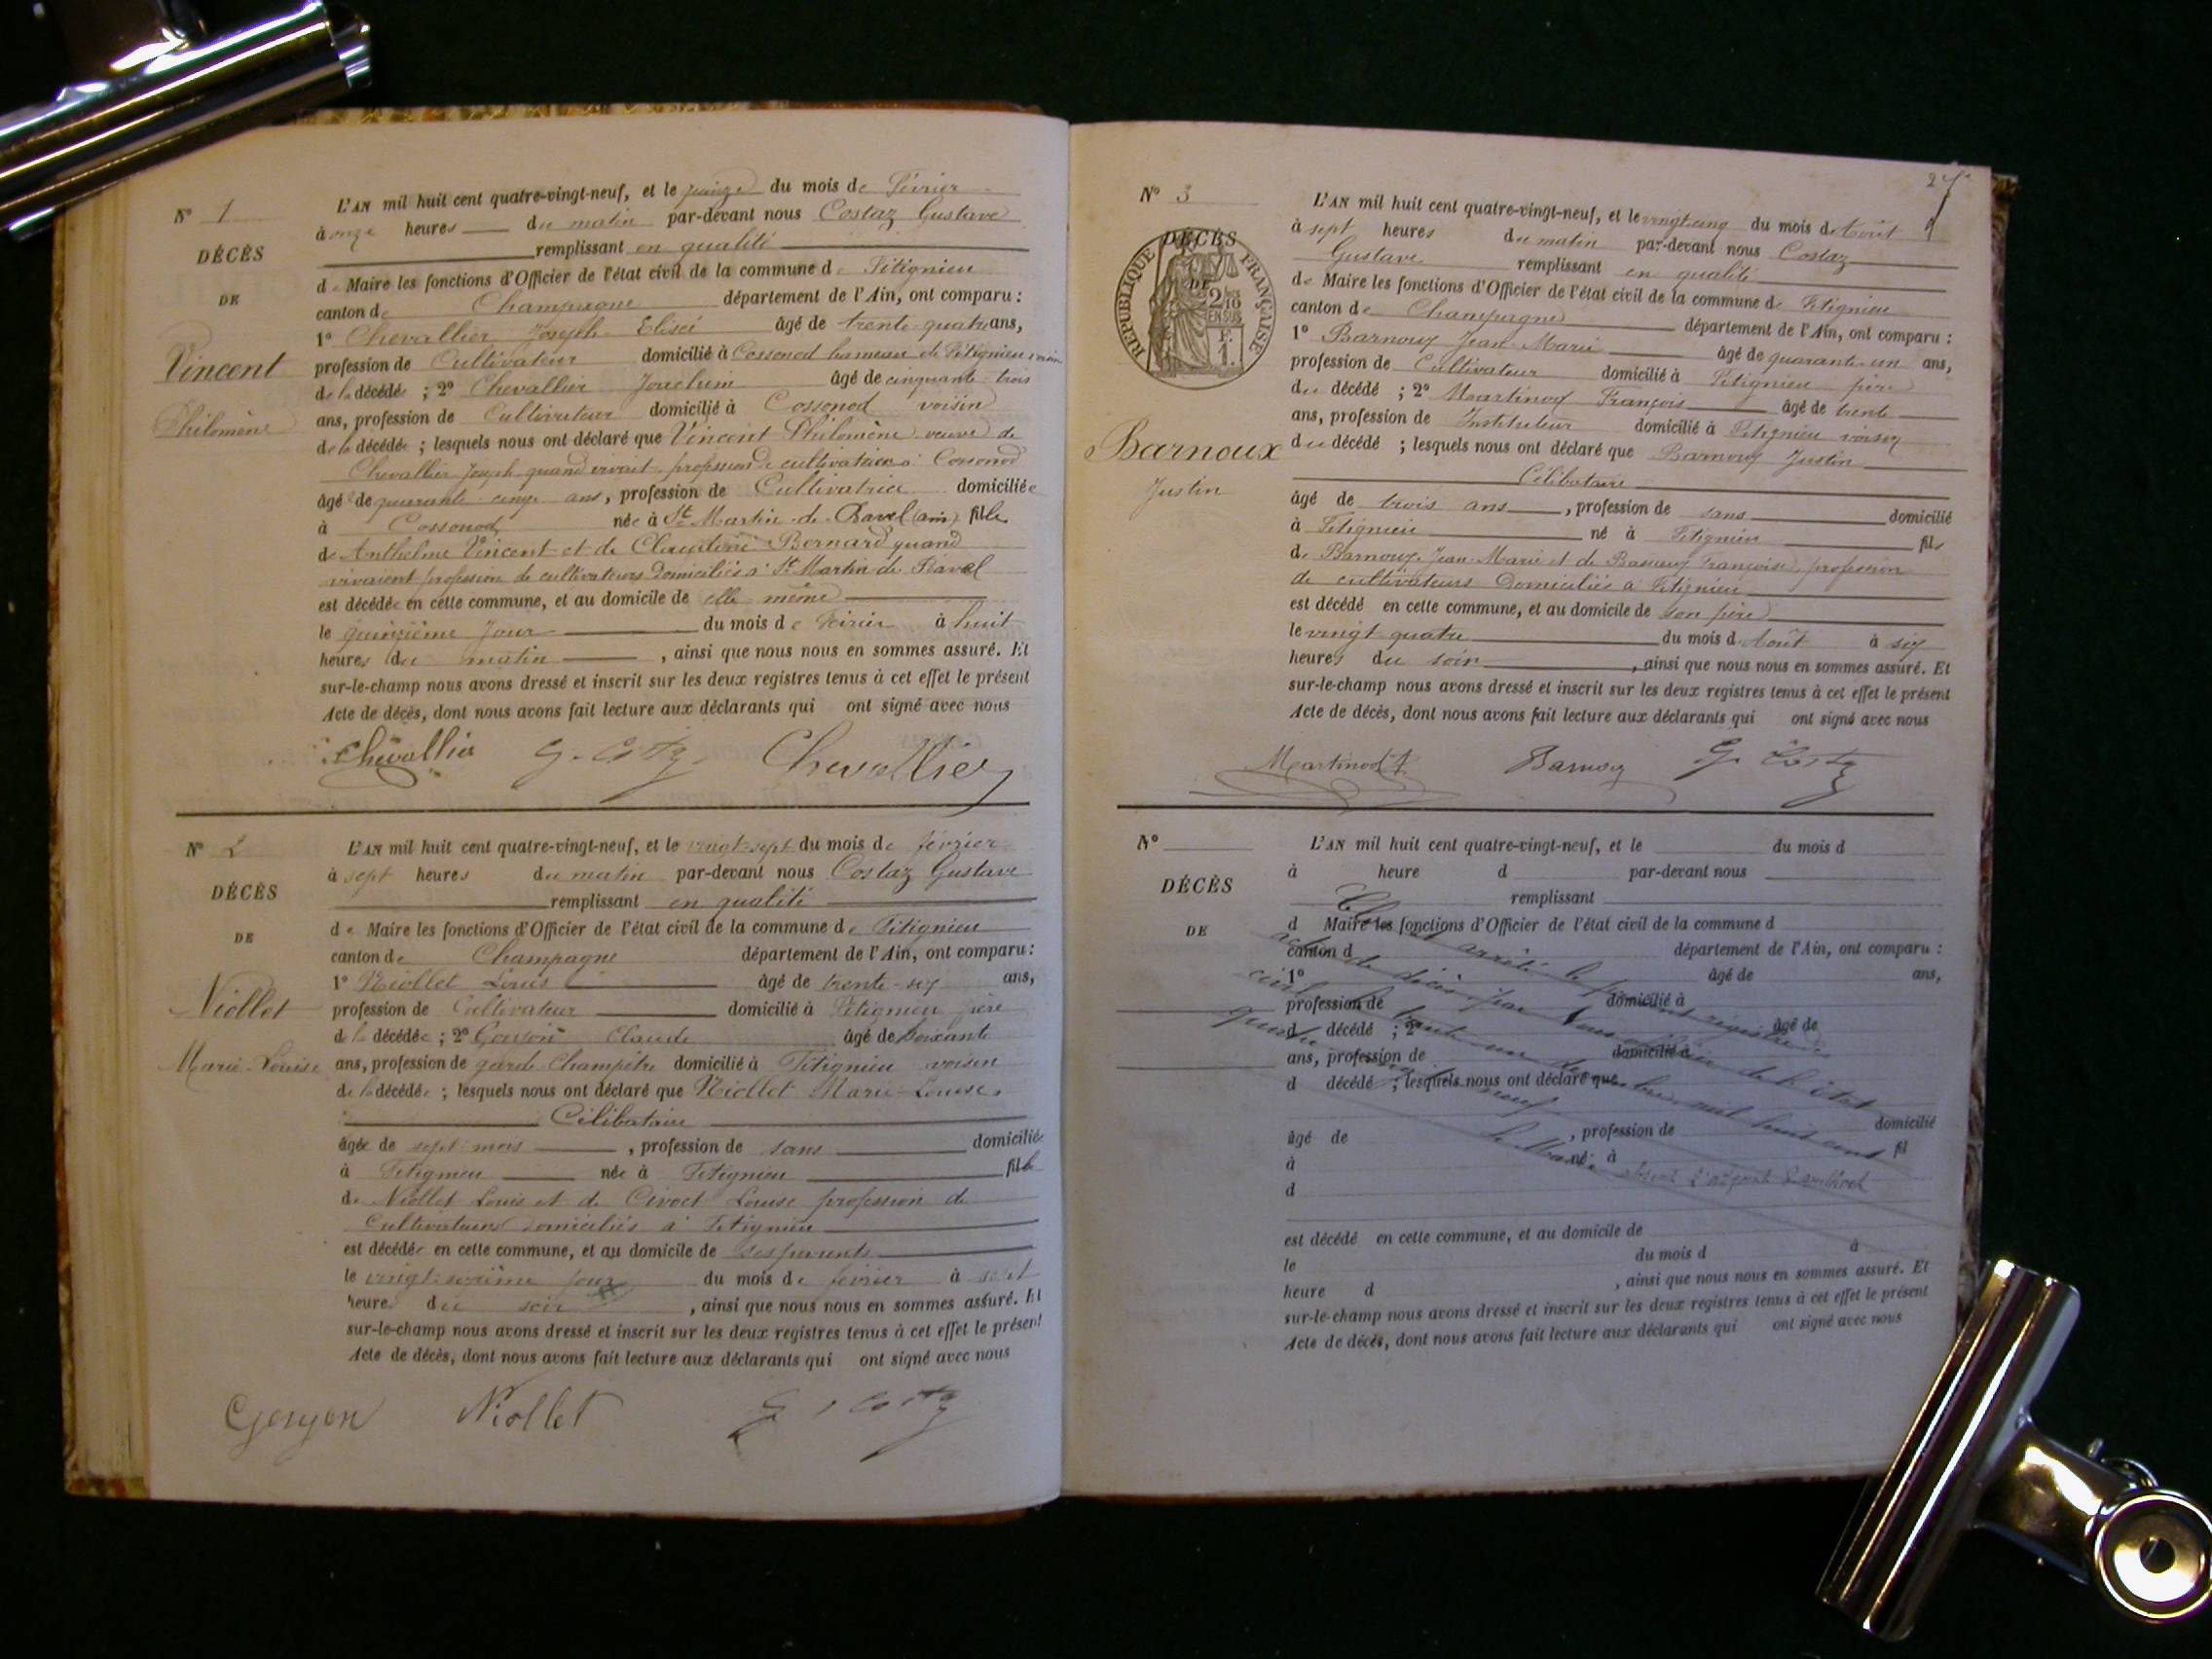 N° 1
DÉCÈS
DE
Vincent
Philomène
L'AN mil huit cent quatre-vingt-neuf, et le quinze du mois de Février
à onze heures du matin par-devant nous Costaz Gustave
remplissant en qualité
de Maire les fonctions d'Officier de l'état civil de la commune de Fitignieu
canton de Champagne département de l'Ain, ont comparu :
1° Chevallier Joseph Elisée âgé de trente-quatre ans,
profession de Cultivateur domicilié à Cossonod hameau de Fitignieu voisin
de la décédée ; 2° Chevallier Joachim âgé de cinquante trois
ans, profession de Cultivateur domicilié à Cossonod voisin
de la décédée ; lesquels nous ont déclaré que Vincent Philomène veuve de
Chevallier Joseph quand vivait profession de cultivateur à Cossonod
âgé de quarante-cinq ans, profession de Cultivatrice domiciliée
à Cossonod née à St Martin-de-Bavel (ain) fille
de Anthelme Vincent et de Claudine Bernard quand
vivaient profession de cultivateurs domiciliés à St Martin de Bavel
est décédée en cette commune, et au domicile de elle même
le quinzième jour du mois de Février à huit
heures du matin , ainsi que nous nous en sommes assuré. Et
sur-le-champ nous avons dressé et inscrit sur les deux registres tenus à cet effet le présent
Acte de décès, dont nous avons fait lecture aux déclarants qui ont signé avec nous
Chevallier G. Costaz Chevallier
N° 2
DÉCÈS
DE
Niollet
Marie-Louise
L'AN mil huit cent quatre-vingt-neuf, et le vingt-sept du mois de février
à sept heures du matin par-devant nous Costaz Gustave
remplissant en qualité
de Maire les fonctions d'Officier de l'état civil de la commune de Fitignieu
canton de Champagne département de l'Ain, ont comparu :
1° Niollet Louis âgé de trente-six ans,
profession de Cultivateur domicilié à Fitignieu père
de la décédée ; 2° Goujon Claude âgé de soixante
ans, profession de garde Champêtre domicilié à Fitignieu voisin
de la décédée ; lesquels nous ont déclaré que Niollet Marie-Louise
Célibataire
âgée de sept mois , profession de sans domiciliée
à Fitignieu née à Fitignieu fille
de Niollet Louis et de Civoct Louise profession de
Cultivateurs domiciliés à Fitignieu
est décédée en cette commune, et au domicile de ses parents
le vingt-sixième jour du mois de février à sept
heures du soir , ainsi que nous nous en sommes assuré. Et
sur-le-champ nous avons dressé et inscrit sur les deux registres tenus à cet effet le présent
Acte de décès, dont nous avons fait lecture aux déclarants qui ont signé avec nous
Goujon Niollet G. Costaz
N° 3
DÉCÈS
DE
RÉPUBLIQUE FRANÇAISE
2/10 EN SUS
F. 1.
Barnoux
Justin
L'AN mil huit cent quatre-vingt-neuf, et le vingt cinq du mois d'Août
à sept heures du matin par-devant nous Costaz
Gustave remplissant en qualité
de Maire les fonctions d'Officier de l'état civil de la commune de Fitignieu
canton de Champagne département de l'Ain, ont comparu :
1° Barnoux Jean-Marie âgé de quarante-un ans,
profession de Cultivateur domicilié à Fitignieu père
du décédé ; 2° Martinod François âgé de trente
ans, profession de Instituteur domicilié à Fitignieu voisin
du décédé ; lesquels nous ont déclaré que Barnoux Justin
Célibataire
âgé de trois ans , profession de sans domicilié
à Fitignieu né à Fitignieu fils
de Barnoux Jean-Marie et de Françoise, profession
de cultivateurs domiciliés à Fitignieu
est décédé en cette commune, et au domicile de son père
le vingt quatre du mois d'Août à six
heures du soir , ainsi que nous nous en sommes assuré. Et
sur-le-champ nous avons dressé et inscrit sur les deux registres tenus à cet effet le présent
Acte de décès, dont nous avons fait lecture aux déclarants qui ont signé avec nous
Martinod F. Barnoux G. Costaz
N°
DÉCÈS
DE
L'AN mil huit cent quatre-vingt-neuf, et le du mois d
à heure d par-devant nous
remplissant
d Maire les fonctions d'Officier de l'état civil de la commune d
canton d département de l'Ain, ont comparu :
1° âgé de ans,
profession de domicilié à
d décédé ; 2° âgé de
ans, profession de domicilié à
d décédé ; lesquels nous ont déclaré que
domicilié
âgé de , profession de fil
à né à
d
est décédé en cette commune, et au domicile de
le du mois d à
heure d , ainsi que nous nous en sommes assuré. Et
sur-le-champ nous avons dressé et inscrit sur les deux registres tenus à cet effet le présent
Acte de décès, dont nous avons fait lecture aux déclarants qui ont signé avec nous
Clos et arrêté le présent registre des
actes de décès par nous officier de l'état
civil le trente un décembre mil huit cent
quatre vingt neuf
Le Maire